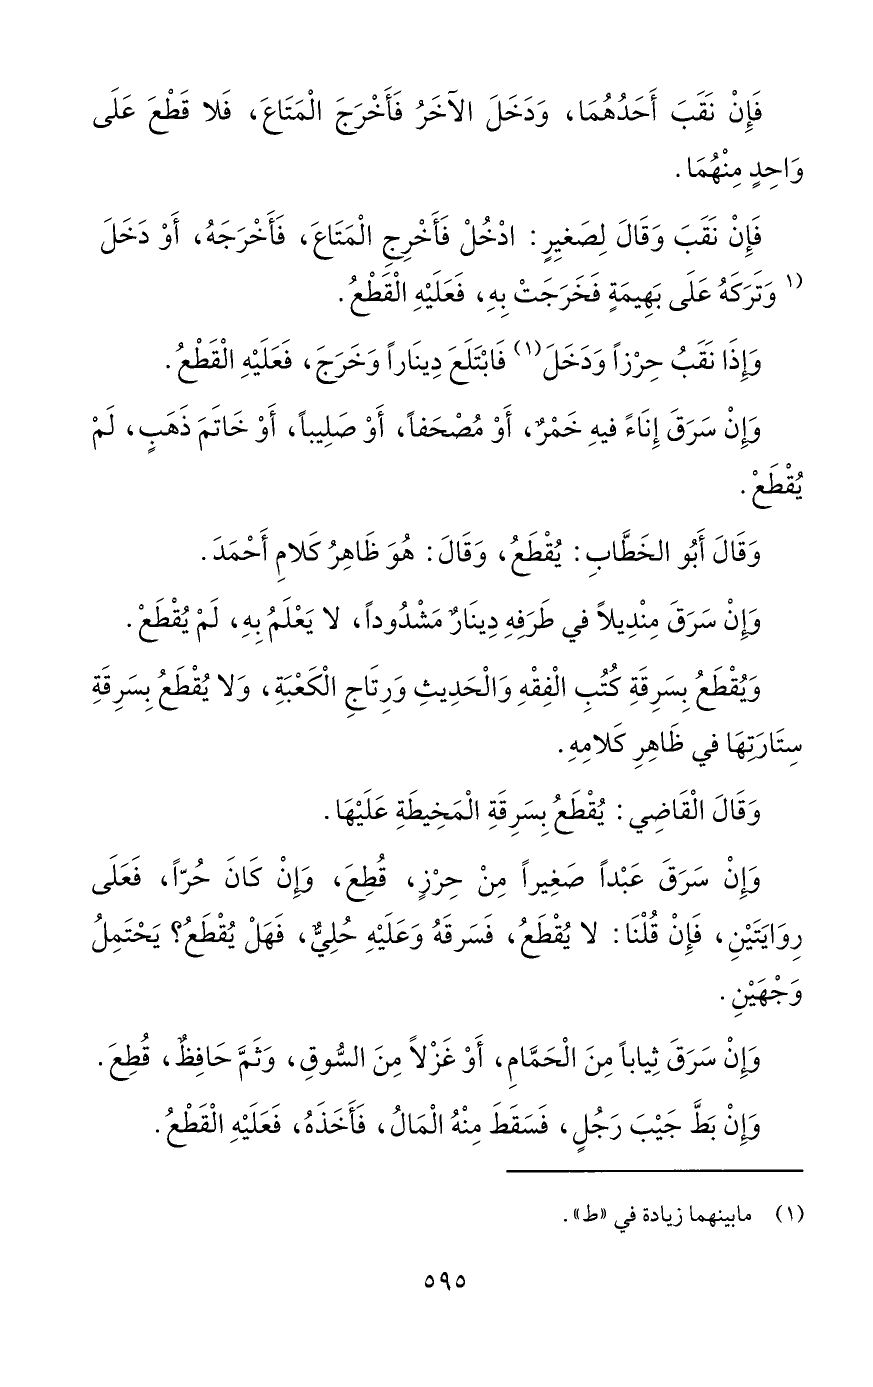 فَإِنْ نَقَبَ أَحَدُهُمَا، وَدَخَلَ الآخَرُ فَأَخْرَجَ الْمَتَاعَ، فَلا قَطْعَ عَلَى
وَاحِدٍ مِنْهُمَا.
فَإِنْ نَقَبَ وَقَالَ لِصَغيرٍ: ادْخُلْ فَأَخْرِجِ الْمَتَاعَ، فَأَخْرَجَهُ، أَوْ دَخَلَ
(١ وَتَرَكَهُ عَلَى بَهِيمَةٍ فَخَرَجَتْ بِهِ، فَعَلَيْهِ الْقَطْعُ.
وَإِذَا نَقَبُ حِرْزاً وَدَخَلَ(١) فَابْتَلَعَ دِينَاراً وَخَرَجَ، فَعَلَيْهِ الْقَطْعُ.
وَإِنْ سَرَقَ إِنَاءً فيهِ خَمْرٌ، أَوْ مُصْحَفاً، أَوْ صَلِيباً، أَوْ خَاتَمَ ذَهَبٍ، لَمْ
يُقْطَعْ.
وَقَالَ أَبُو الخَطَّابِ: يُقْطَعُ، وَقَالَ: هُوَ ظَاهِرُ كَلامِ أَحْمَدَ.
وَإِنْ سَرَقَ مِنْدِيلاً في طَرَفِهِ دِينَارٌ مَشْدُوداً، لا يَعْلَمُ بِهِ، لَمْ يُقْطَعْ.
وَيُقْطَعُ بِسَرِقَةِ كُتُبِ الْفِقْهِ وَالْحَدِيثِ وَرِتَاجِ الْكَعْبَةِ، وَلا يُقْطَعُ بِسَرِقَةِ
سِتَارَتِهَا في ظَاهِرِ كَلامِهِ.
وَقَالَ الْقَاضِي: يُقْطَعُ بِسَرِقَةِ الْمَخِيطَةِ عَلَيْهَا.
وَإِنْ سَرَقَ عَبْداً صَغيراً مِنْ حِرْزٍ، قُطِعَ، وَإِنْ كَانَ حُرّاً، فَعَلَى
رِوَايَتَيْنِ، فَإِنْ قُلْنَا: لا يُقْطَعُ، فَسَرقَهُ وَعَلَيْهِ حُلِيٌّ، فَهَلْ يُقْطَعُ؟ يَحْتَمِلُ
وَجْهَيْنِ.
وَإِنْ سَرَقَ ثِياباً مِنَ الْحَمَّامِ، أَوْ غَزْلاً مِنَ السُّوقِ، وَثَمَّ حَافِظٌ، قُطِعَ.
وَإِنْ بَطَّ جَيْبَ رَجُلٍ، فَسَقَطَ مِنْهُ الْمَالُ، فَأَخَذَهُ، فَعَلَيْهِ الْقَطْعُ.
(١) مابينهما زيادة في «ط».
٥٩٥